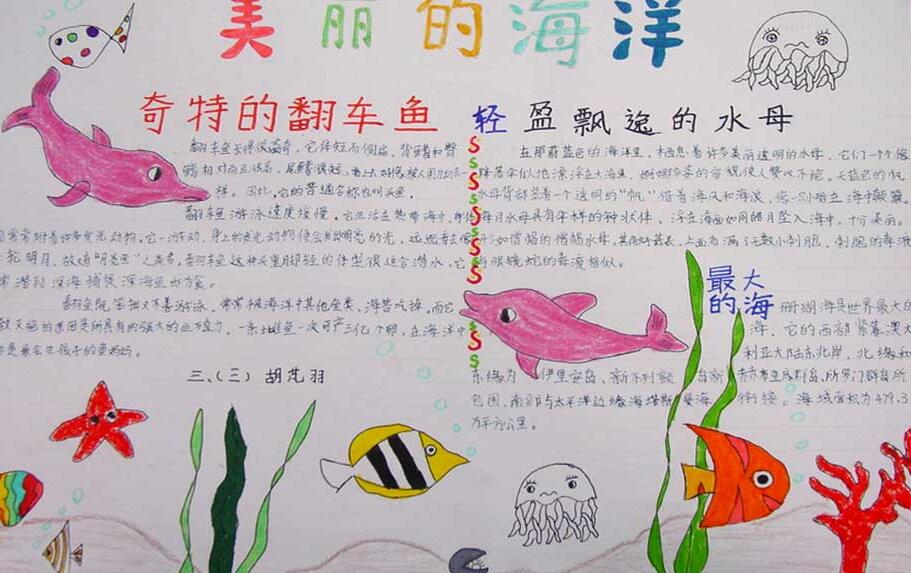 美丽的海洋
奇特的翻车鱼
翻车鱼长得很离奇，它体短而侧扁，背鳍和臀
鳍相对而且很高，尾鳍很短，看上去好像被人用刀切去一
样。因此，它的普通名称也叫头鱼。
翻车鱼游泳速度缓慢，它生活在热带海中，身体
周常常附着许多发光动物。它一游动，身上的发光动物便会发出明亮的光，远远看去像
轮明月，故有“月亮鱼”之美名，翻车鱼这种头重脚轻的体型很适合潜水，它
常潜到深海捕捉深海鱼虾为食。
翻车鱼既笨拙又不善游泳，常常被海洋中其他鱼类、海兽吃掉。而它
致灭绝的原因是所具有的强大的生殖力，一条雌鱼一次可产三亿个卵，在海洋中
是最会生孩子的鱼妈妈。
三、(三) 胡芃羽
轻盈飘逸的水母
在那蔚蓝色的海洋里，栖息着许多美丽透明的水母，它们一个个像
降落伞似地漂浮在大海里，
水母背部竖着一个透明的“帆”借着海风和海浪，像一只小船在海中颠簸。
海月水母具有伞样的钟状体，浮在海面如同皓月坠入海中，十分美丽。
上面布满了无数小刺胞，刺胞的毒液
与眼镜蛇的毒液相似。
最大
的海
珊瑚海是世界最大的
海，它的西部紧靠澳大
利亚大陆东北岸，北缘和
东缘为伊里安岛、新不列颠岛、
所罗门群岛所
包围，南部与太平洋边缘海塔斯曼海衔接。海域面积为479.3
万平方公里。
S
S
S
S
S
S
S
S
S
S